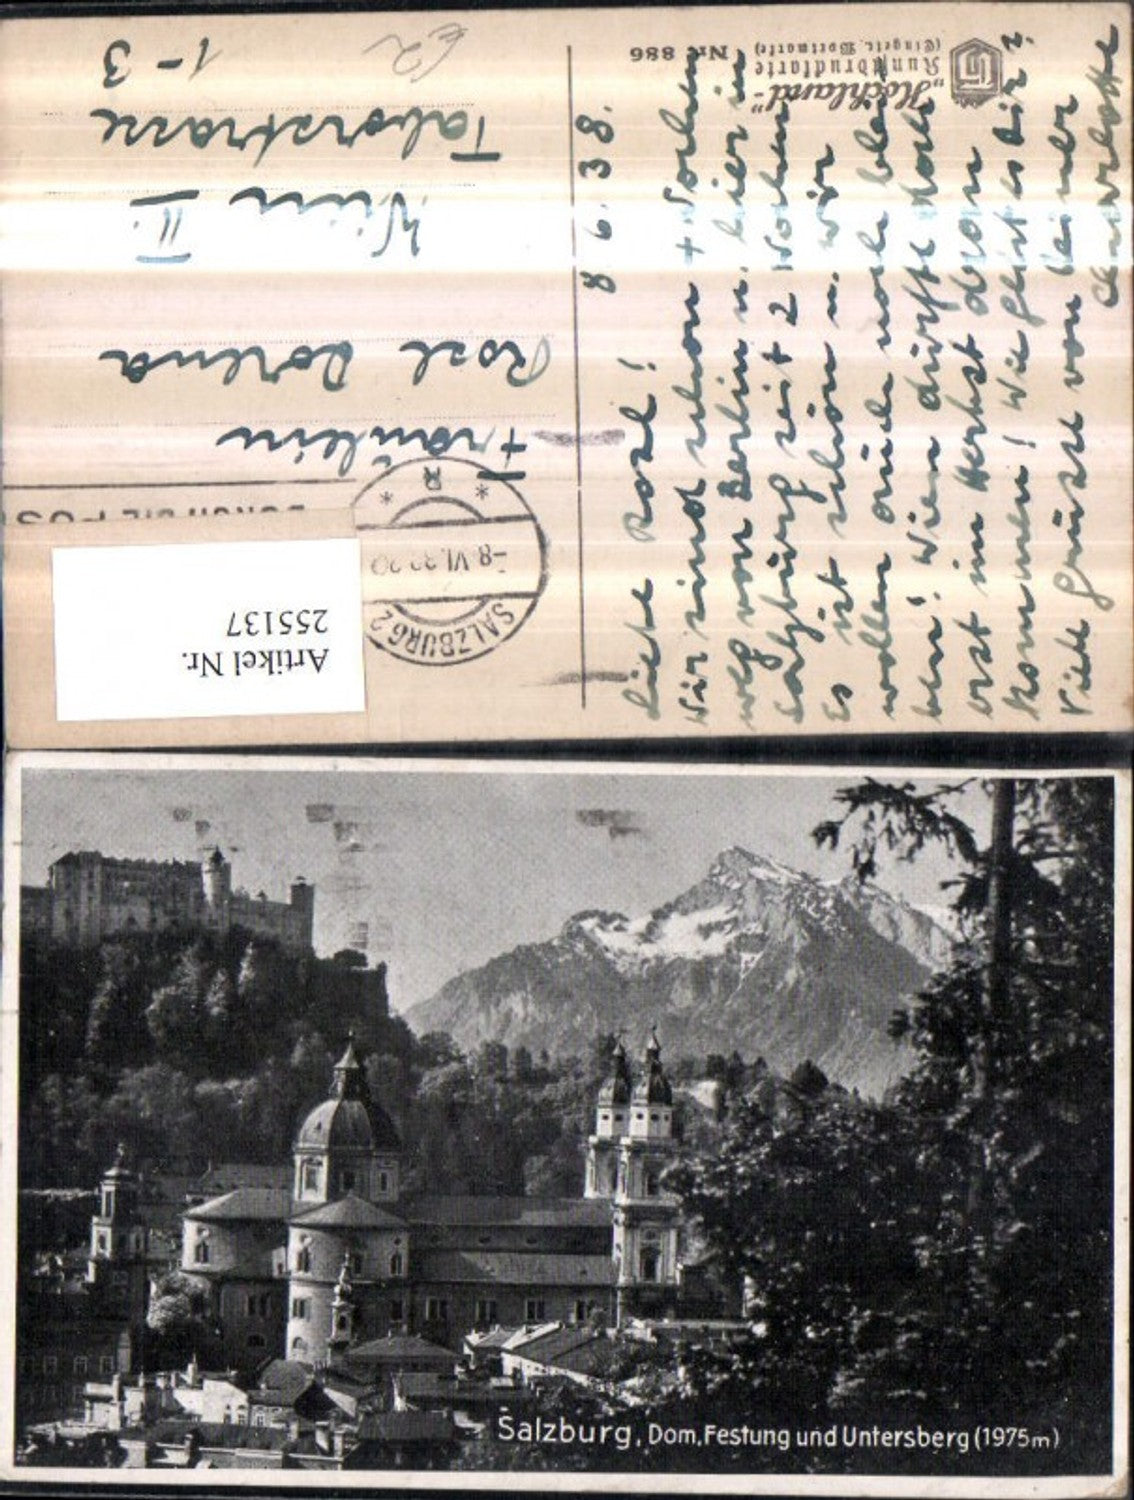 "Hochland"-
Kunstdruckkarte
(Eingetr. Wortmarke) Nr. 886
8. 6. 38.
Liebe Rosl!
Wir sind schon 4 Wochen
weg von Berlin u. hier in
Salzburg seit 2 Wochen.
Es ist schön u. wir
wollen auch noch blei-
ben! Wien dürfte doch
erst im Herbst dran
kommen! Wie geht es dir?
Viele Grüsse von deiner
Charlotte
€2
Fräulein
Rosl
Wien II.
Taborstrasse
1-3
SALZBURG 2
-8.VI.38
Artikel Nr.
255137
Salzburg, Dom, Festung und Untersberg (1975m)